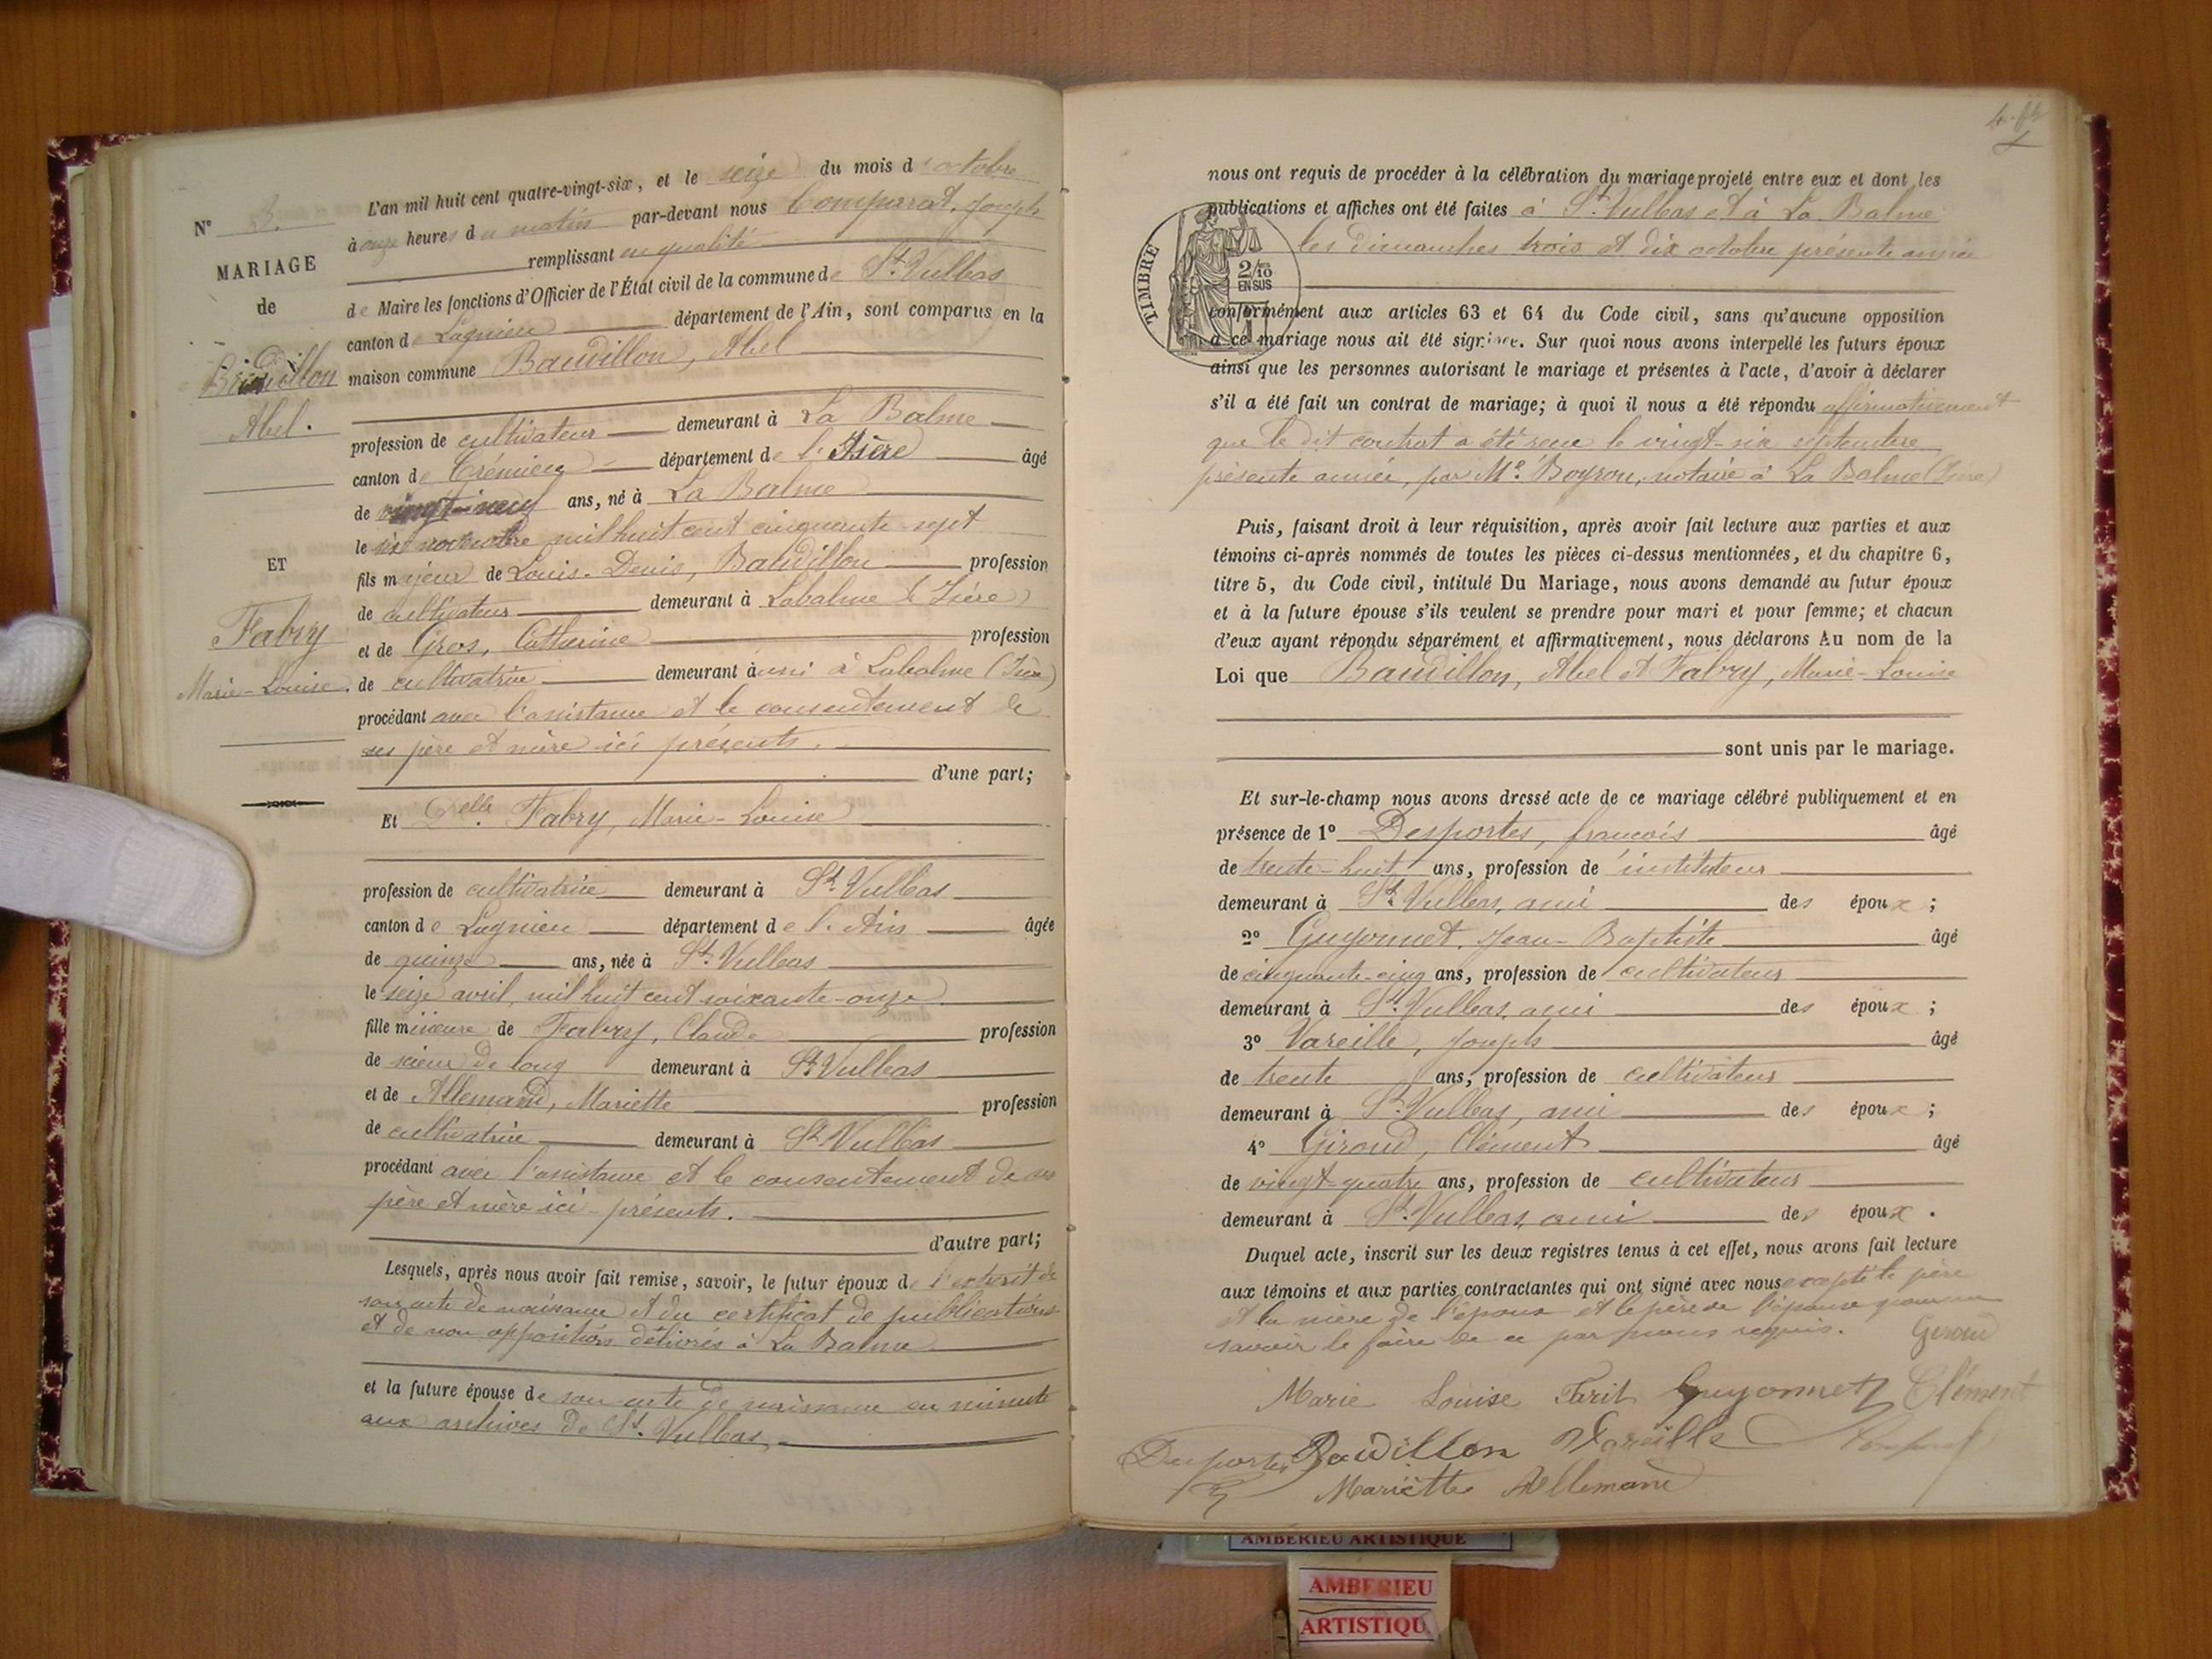 N° 3.
MARIAGE
de
Baudillon
Abel.
ET
Fabry
Marie-Louise.
L'an mil huit cent quatre-vingt-six, et le seize du mois d'octobre
à onze heures du matin par-devant nous Comparat, Joseph
remplissant en qualité
de Maire les fonctions d'Officier de l'État civil de la commune de St. Vulbas
canton de Lagnieu département de l'Ain, sont comparus en la
maison commune Baudillon, Abel
profession de cultivateur demeurant à La Balme
canton de Crémieu département de l'Isère âgé
de vingt-neuf ans, né à La Balme
le six novembre mil huit cent cinquante-sept
fils majeur de Louis-Denis, Baudillon profession
de cultivateur demeurant à Labalme (Isère)
et de Gros, Catherine profession
de cultivatrice demeurant à Labalme (Isère)
procédant avec l'assistance et le consentement de
ses père et mère ici présents.
d'une part;
Et Delle. Fabry, Marie-Louise
profession de cultivatrice demeurant à St. Vulbas
canton de Lagnieu département de l'Ain âgée
de quinze ans, née à St. Vulbas
le seize avril, mil huit cent soixante-onze
fille mineure de Fabry, Claude profession
de scieur de long demeurant à St. Vulbas
et de Allemand, Mariette profession
de cultivatrice demeurant à St. Vulbas
procédant avec l'assistance et le consentement de ses
père et mère ici-présents.
d'autre part;
Lesquels, après nous avoir fait remise, savoir, le futur époux de l'extrait de
son acte de naissance et du certificat de publications
et de non opposition délivrés à La Balme
et la future épouse de son acte de naissance en minute
aux archives de St. Vulbas,
nous ont requis de procéder à la célébration du mariage projeté entre eux et dont les
publications et affiches ont été faites à St. Vulbas et à La Balme
les dimanches trois et dix octobre présente année
TIMBRE
2/10
EN SUS
conformément aux articles 63 et 64 du Code civil, sans qu'aucune opposition
à ce mariage nous ait été signifiée. Sur quoi nous avons interpellé les futurs époux
ainsi que les personnes autorisant le mariage et présentes à l'acte, d'avoir à déclarer
s'il a été fait un contrat de mariage; à quoi il nous a été répondu affirmativement
que le dit contrat a été reçu le vingt-six septembre
présente année, par Me. Boyron, notaire à La Balme (Isère)
Puis, faisant droit à leur réquisition, après avoir fait lecture aux parties et aux
témoins ci-après nommés de toutes les pièces ci-dessus mentionnées, et du chapitre 6,
titre 5, du Code civil, intitulé Du Mariage, nous avons demandé au futur époux
et à la future épouse s'ils veulent se prendre pour mari et pour femme; et chacun
d'eux ayant répondu séparément et affirmativement, nous déclarons Au nom de la
Loi que Baudillon, Abel et Fabry, Marie-Louise
sont unis par le mariage.
Et sur-le-champ nous avons dressé acte de ce mariage célébré publiquement et en
présence de 1° Desportes, françois âgé
de trente-huit ans, profession de instituteur
demeurant à St. Vulbas, ami des époux;
2° Guyonnet, Jean-Baptiste âgé
de cinquante-cinq ans, profession de cultivateur
demeurant à St. Vulbas, ami des époux;
3° Vareille, Joseph âgé
de trente ans, profession de cultivateur
demeurant à St. Vulbas, ami des époux;
4° Giroud, Clément âgé
de vingt-quatre ans, profession de cultivateur
demeurant à St. Vulbas, ami des époux.
Duquel acte, inscrit sur les deux registres tenus à cet effet, nous avons fait lecture
aux témoins et aux parties contractantes qui ont signé avec nous excepté le père
et la mère de l'époux et le père de l'épouse pour ne
savoir le faire de ce par nous requis. Giroud
Marie Louise Guyonnet Clément
Desportes Baudillon Vareille
Mariette Allemand
AMBERIEU ARTISTIQUE
AMBERIEU
ARTISTIQU